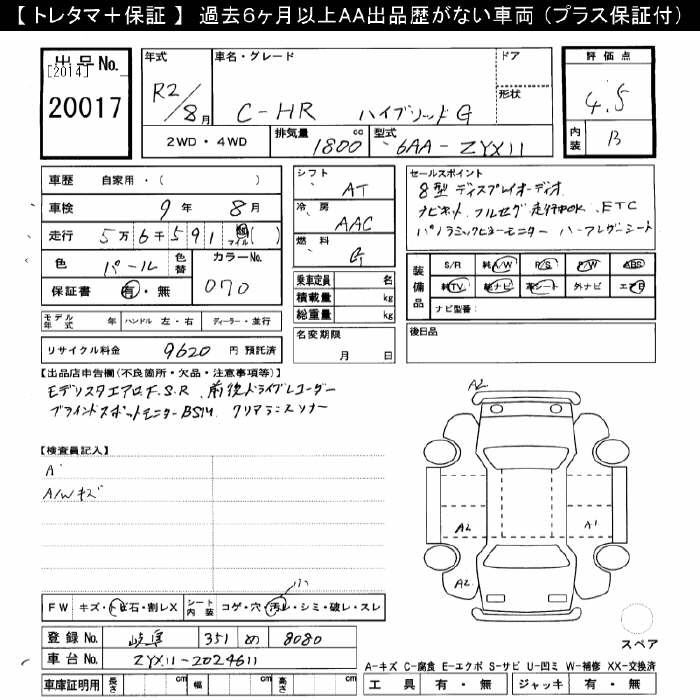 【 トレタマ＋保証 】 過去6ヶ月以上AA出品歴がない車両（プラス保証付）
出品No.
[2014]
20017
年式 車名・グレード ドア
R2/8月 C-HR ハイブリッドG 形状
2WD・4WD 排気量 1800 cc 型式 6AA-ZYX11
評価点
4.5
内装 B
車歴 自家用・( )
車検 9年 8月
走行 5万6千591 マイル ( )
色 パール 色替 カラーNo. 070
保証書 有・無
モデル年式 年 ハンドル 左・右 ディーラー・並行
リサイクル料金 9620 円 預託済
シフト AT
冷房 AAC
燃料 G
乗車定員 名
積載量 kg
総重量 kg
名変期限
月 日
セールスポイント
8型ディスプレイオーディオ
ナビキット フルセグ 走行中OK ETC
パノラミックビューモニター ハーフレザーシート
装備品 S/R 純A/W P/S P/W ABS
純TV 純ナビ 革シート 外ナビ エアB
ナビ型番:
後日品
【出品店申告欄(不良箇所・欠品・注意事項等)】
モデリスタエアロF.S.R 前後ドライブレコーダー
ブラインドスポットモニターBSM クリアランスソナー
【検査員記入】
A
A/Wキズ
A2
A2
A1
A2
FW キズ・トビ石・割レX シート内装 コゲ・穴・汚レ・シミ・破レ・スレ
登録No. 岐阜 351 め 8080
車台No. ZYX11-2024611
車庫証明用 長さ cm 幅 cm 高さ cm
スペア
A-キズ C-腐食 E-エクボ S-サビ U-凹ミ W-補修 XX-交換済
工具 有・無 ジャッキ 有・無